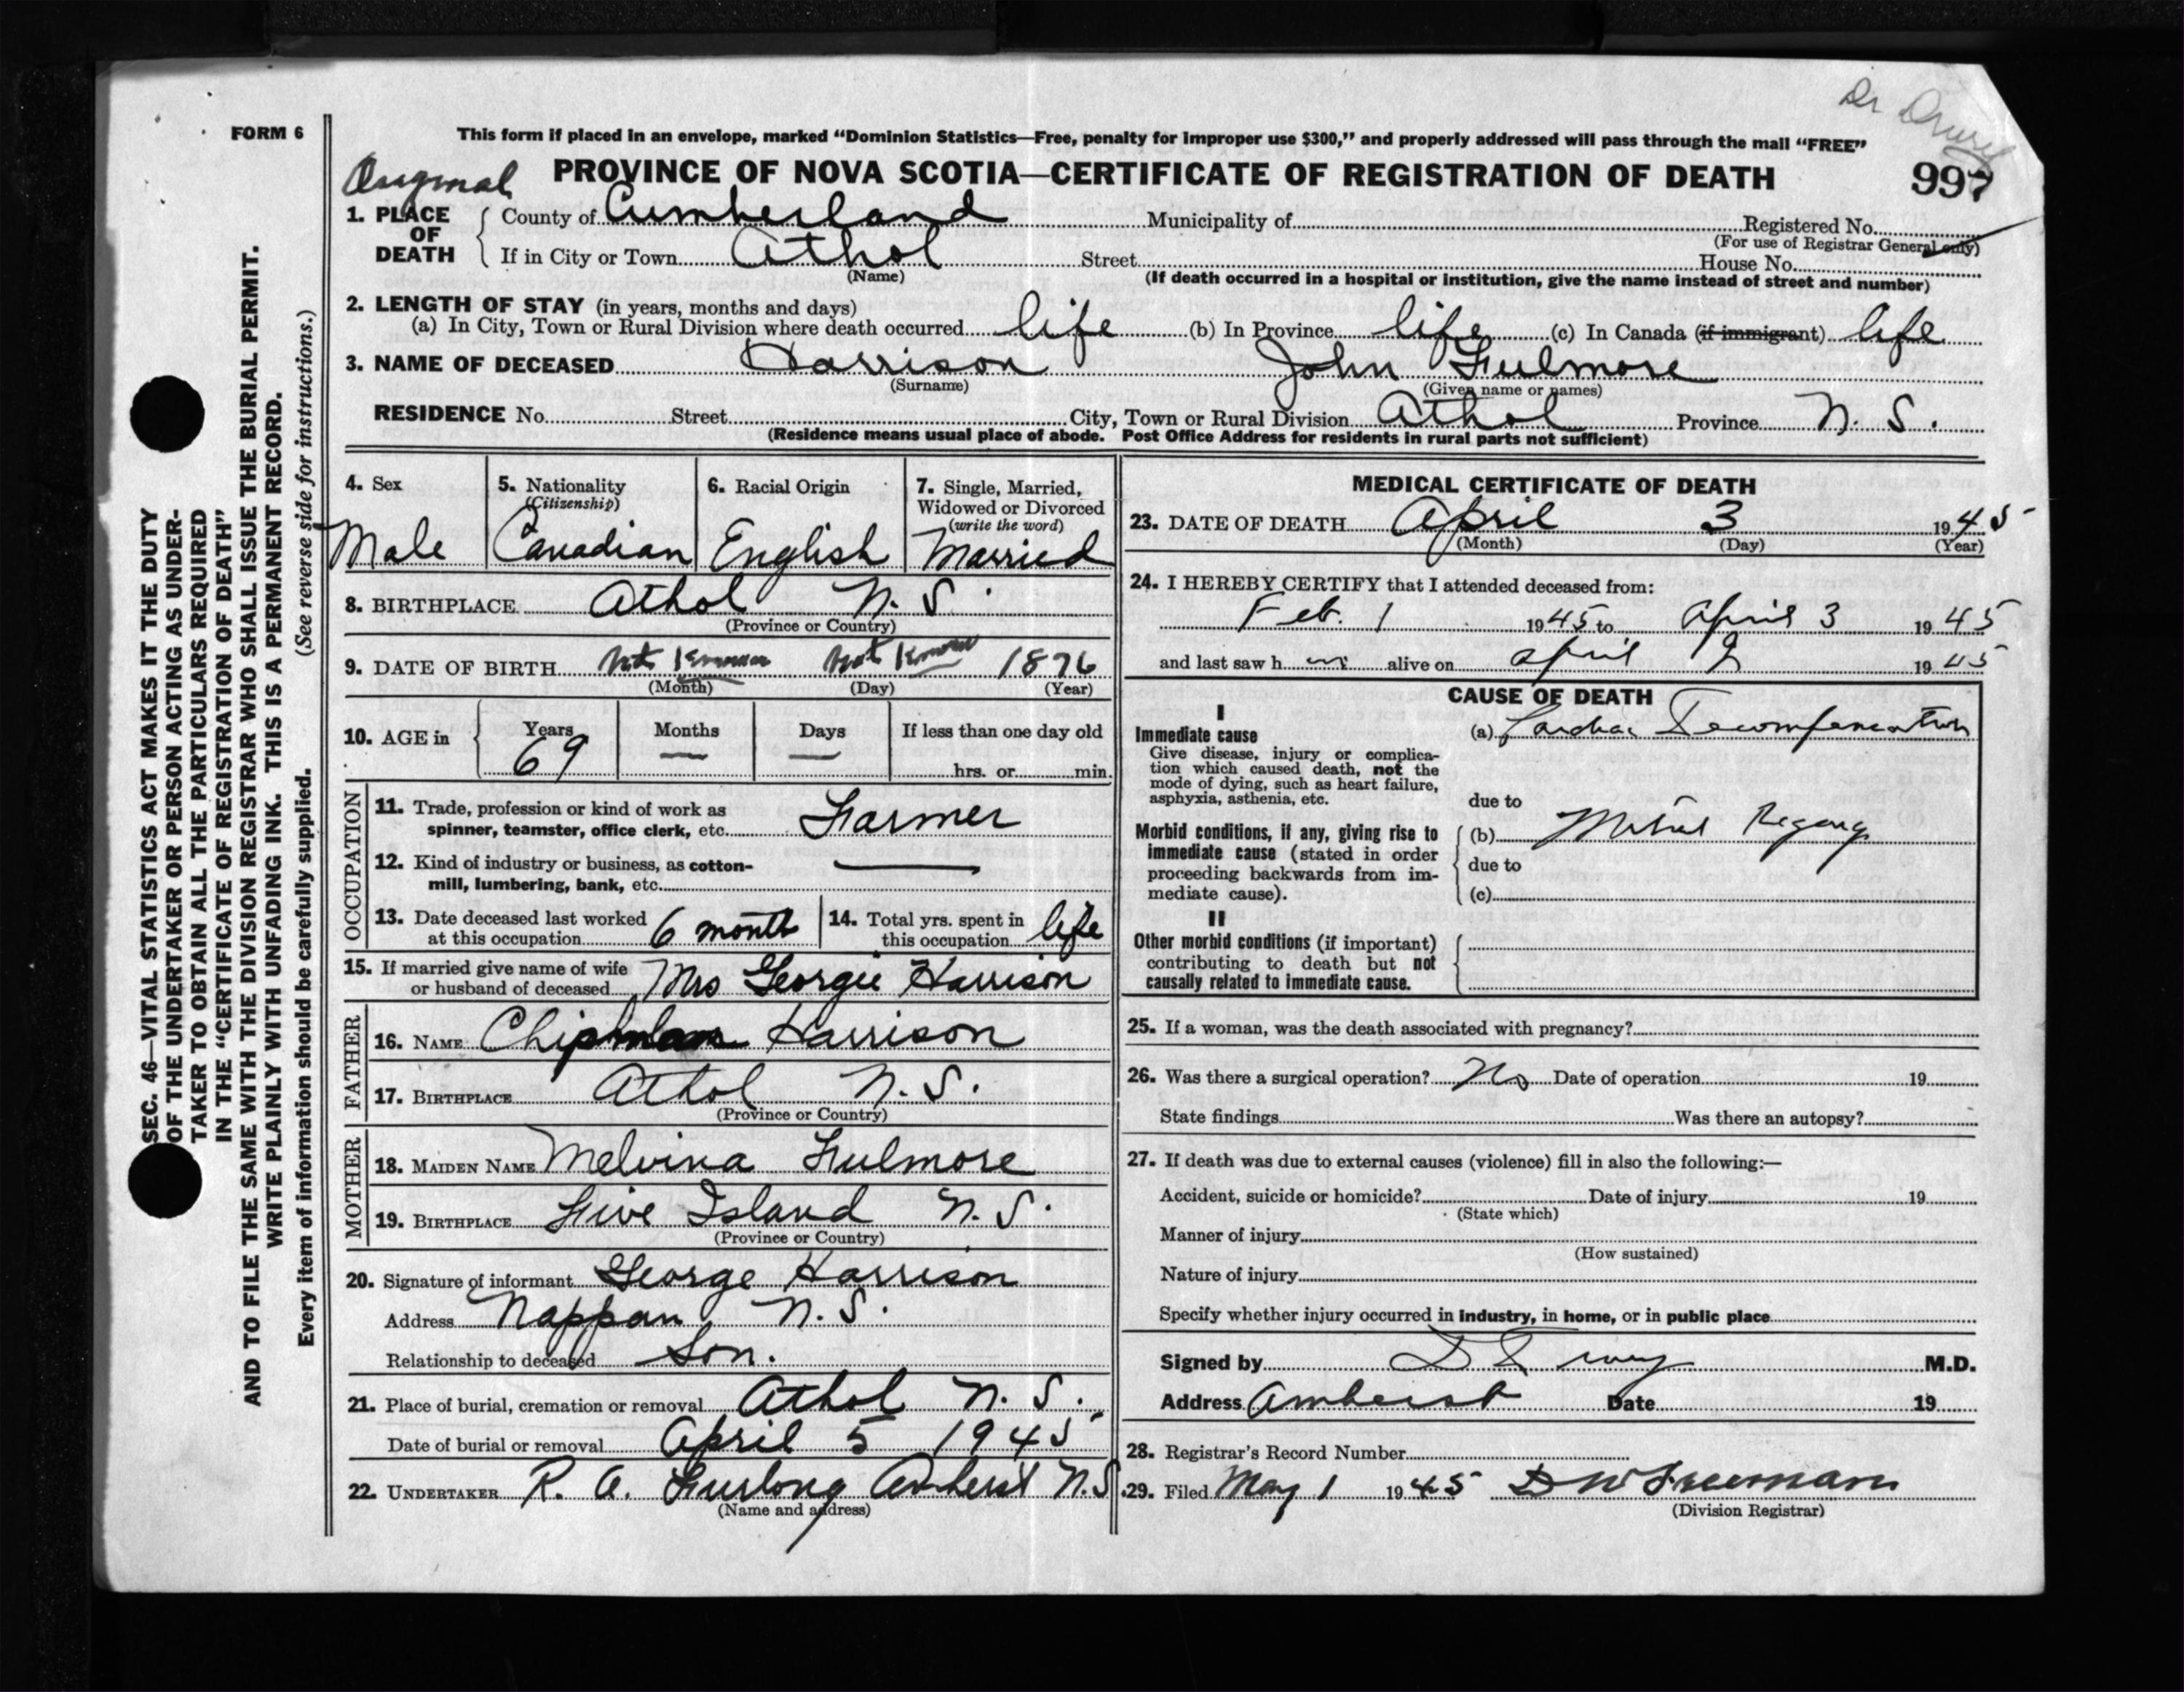 FORM 6
This form if placed in an envelope, marked "Dominion Statistics—Free, penalty for improper use $300," and properly addressed will pass through the mail "FREE"
Dr
Original
PROVINCE OF NOVA SCOTIA—CERTIFICATE OF REGISTRATION OF DEATH
997
1. PLACE OF DEATH
County of Cumberland Municipality of Registered No.
(For use of Registrar General only)
If in City or Town Athol Street House No.
(Name) (If death occurred in a hospital or institution, give the name instead of street and number)
2. LENGTH OF STAY (in years, months and days)
(a) In City, Town or Rural Division where death occurred life (b) In Province life (c) In Canada (if immigrant) life
3. NAME OF DECEASED Harrison John Fulmore
(Surname) (Given name or names)
RESIDENCE No. Street City, Town or Rural Division Athol Province N. S.
(Residence means usual place of abode. Post Office Address for residents in rural parts not sufficient)
4. Sex
Male
5. Nationality
(Citizenship)
Canadian
6. Racial Origin
English
7. Single, Married,
Widowed or Divorced
(write the word)
Married
8. BIRTHPLACE Athol N. S.
(Province or Country)
9. DATE OF BIRTH Not Known Not Known 1876
(Month) (Day) (Year)
10. AGE in
Years Months Days If less than one day old
69 — — hrs. or min.
OCCUPATION
11. Trade, profession or kind of work as
spinner, teamster, office clerk, etc. Farmer
12. Kind of industry or business, as cotton-
mill, lumbering, bank, etc. —
13. Date deceased last worked
at this occupation 6 month
14. Total yrs. spent in
this occupation life
15. If married give name of wife
or husband of deceased Mrs Georgie Harrison
FATHER
16. NAME Chipman Harrison
17. BIRTHPLACE Athol N. S.
(Province or Country)
MOTHER
18. MAIDEN NAME Melvina Fulmore
19. BIRTHPLACE Five Island N. S.
(Province or Country)
20. Signature of informant George Harrison
Address Nappan N. S.
Relationship to deceased Son.
21. Place of burial, cremation or removal Athol N. S.
Date of burial or removal April 5 1945
22. UNDERTAKER R. A. Furlong Amherst N.S.
(Name and address)
MEDICAL CERTIFICATE OF DEATH
23. DATE OF DEATH April 3 1945
(Month) (Day) (Year)
24. I HEREBY CERTIFY that I attended deceased from:
Feb. 1 1945 to April 3 1945
and last saw h im alive on April 2 1945
CAUSE OF DEATH
I
Immediate cause
Give disease, injury or complica-
tion which caused death, not the
mode of dying, such as heart failure,
asphyxia, asthenia, etc.
(a) Cardiac Decompensation
due to
Morbid conditions, if any, giving rise to
immediate cause (stated in order
proceeding backwards from im-
mediate cause).
(b) Mitral Regurg
due to
(c)
II
Other morbid conditions (if important)
contributing to death but not
causally related to immediate cause.
25. If a woman, was the death associated with pregnancy?
26. Was there a surgical operation? No Date of operation 19
State findings Was there an autopsy?
27. If death was due to external causes (violence) fill in also the following:—
Accident, suicide or homicide? Date of injury 19
(State which)
Manner of injury
(How sustained)
Nature of injury
Specify whether injury occurred in industry, in home, or in public place
Signed by M.D.
Address Amherst Date 19
28. Registrar's Record Number
29. Filed May 1 1945 D W Freeman
(Division Registrar)
SEC. 46—VITAL STATISTICS ACT MAKES IT THE DUTY
OF THE UNDERTAKER OR PERSON ACTING AS UNDER-
TAKER TO OBTAIN ALL THE PARTICULARS REQUIRED
IN THE "CERTIFICATE OF REGISTRATION OF DEATH"
AND TO FILE THE SAME WITH THE DIVISION REGISTRAR WHO SHALL ISSUE THE BURIAL PERMIT.
WRITE PLAINLY WITH UNFADING INK. THIS IS A PERMANENT RECORD.
Every item of information should be carefully supplied. (See reverse side for instructions.)